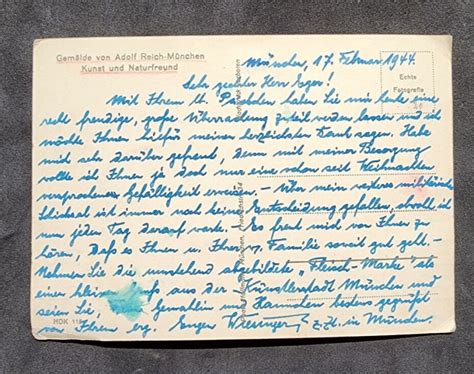 Gemälde von Adolf Reich-München
Kunst und Naturfreund
München, 17. Februar 1944.
Echte
Fotografie
Sehr geehrter Herr Eger!
Mit Ihrem lb. haben Sie mir heute eine
recht freudige, große Überraschung zuteil werden lassen und ich
möchte Ihnen hiefür meinen herzlichsten Dank sagen. Habe
mich sehr darüber gefreut, denn mit meiner Besorgung
wollte ich Ihnen ja doch nur eine schon seit Weihnachten
versprochene Gefälligkeit erweisen. – Über mein weiteres militärisches
Schicksal ist immer noch keine Entscheidung gefallen, obwohl ich
nun jeden Tag darauf warte. Es freut mich von Ihnen zu
hören, daß es Ihnen u. Ihrer Familie soweit gut geht. –
Nehmen Sie die umstehend abgebildete "Fleisch-Marke" als
einen kleinen aus der Künstlerstadt München und
seien Sie, Gemahlin und bestens gegrüßt
von Ihrem erg. Eugen z. Zt. in München.
HDK